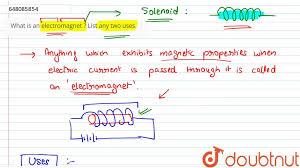 648085854
What is an electromagnet ? List any two uses.
Solenoid :
→ Anything which exhibits magnetic properties when
electric current is passed through it is called
an 'electromagnet'.
Uses :-
doubtnut